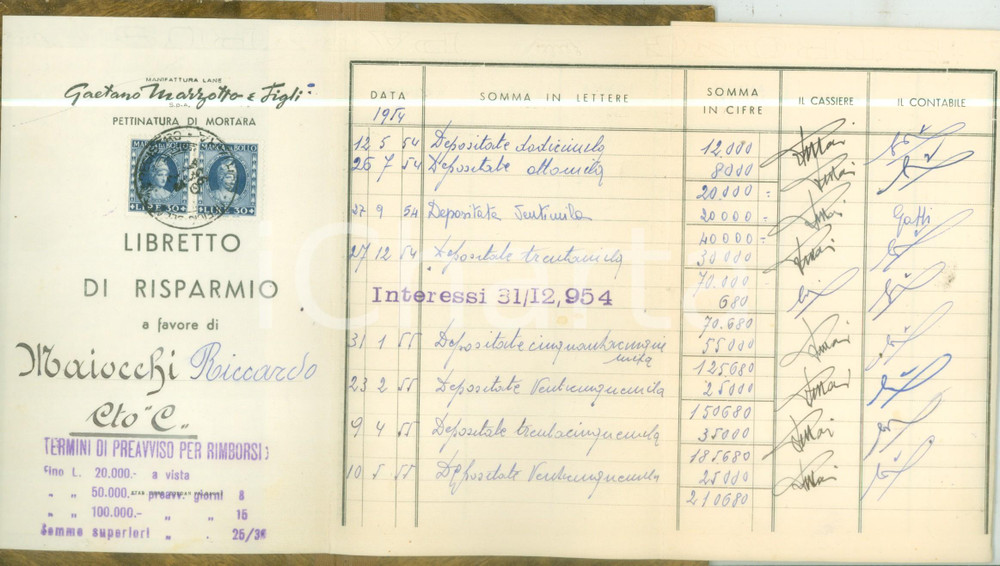 MANIFATTURA LANE
Gaetano Marzotto e Figli
S.p.A.
PETTINATURA DI MORTARA
MARCA DA BOLLO MARCA DA BOLLO
LIRE 30 LIRE 30
LIBRETTO
DI RISPARMIO
a favore di
Maiocchi Riccardo
Cto "C"
TERMINI DI PREAVVISO PER RIMBORSI:
fino L. 20.000.- a vista
" " 50.000.- preavv. giorni 8
" " 100.000.- " " 15
Somme superiori " . 25/30
DATA SOMMA IN LETTERE SOMMA IN CIFRE IL CASSIERE IL CONTABILE
1954
12 5 54 Depositate dodicimila 12.000
26 7 54 Depositate ottomila 8000
20.000 =
27 9 54 Depositata Ventimila 20000 Gatti
40000 =
27 12 54 Depositate trentamila 30000
70.000
Interessi 31/12,954 680
70.680
31 1 55 Depositate cinquantacinquemila 55000
125680
23 2 55 Depositate Venticinquemila 25000
150680
9 4 55 Depositate trentacinquemila 35000
185.680
10 5 55 Depositate Venticinquemila 25000
210680
iCharta